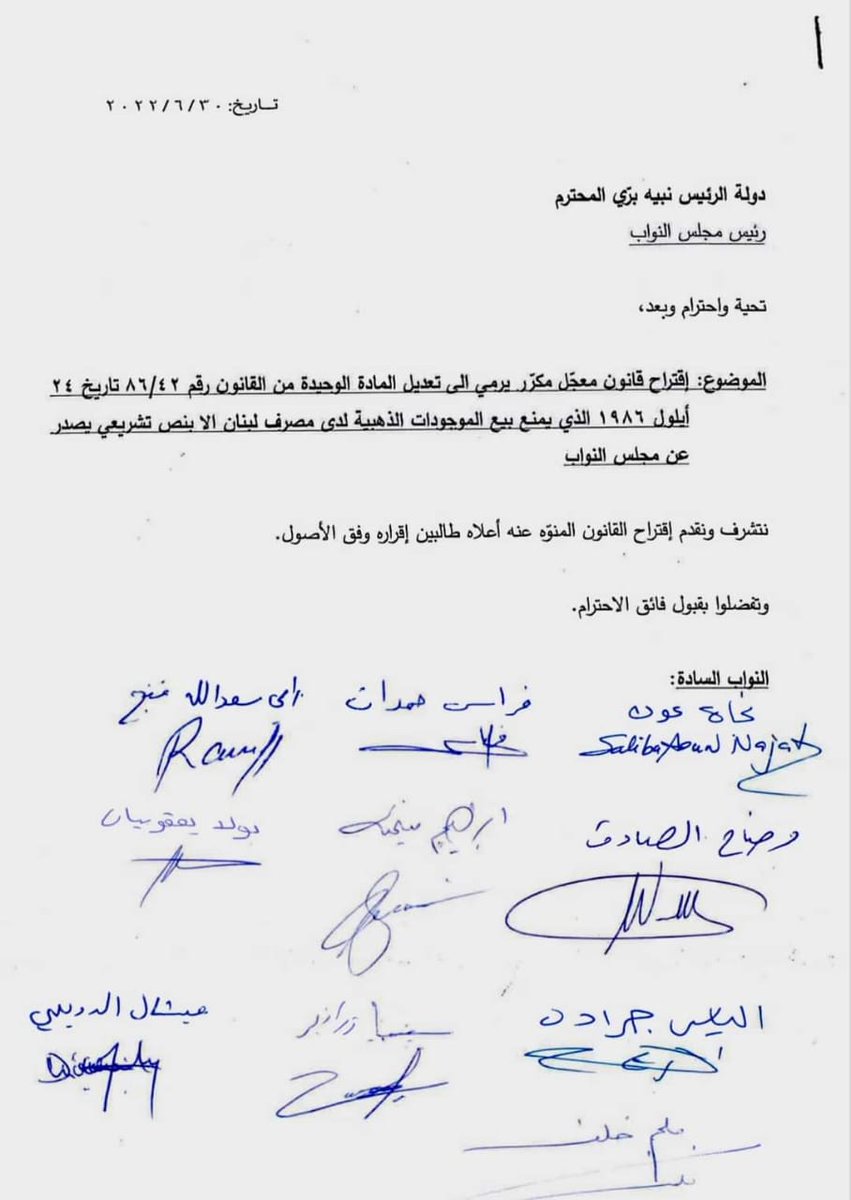 ١
تاريخ: ٢٠٢٢/٦/٣٠
دولة الرئيس نبيه برّي المحترم
رئيس مجلس النواب
تحية واحترام وبعد،
الموضوع: إقتراح قانون معجّل مكرّر يرمي الى تعديل المادة الوحيدة من القانون رقم ٨٦/٤٢ تاريخ ٢٤
أيلول ١٩٨٦ الذي يمنع بيع الموجودات الذهبية لدى مصرف لبنان الا بنص تشريعي يصدر
عن مجلس النواب
نتشرف ونقدم إقتراح القانون المنوّه عنه أعلاه طالبين إقراره وفق الأصول.
وتفضلوا بقبول فائق الاحترام.
النواب السادة:
نجاة عون فراس حمدان رامي سعدالله فنج
Saliba Aoun Najat
وضاح الصادق ابراهيم منيمنة بولا يعقوبيان
الياس جرادة سينتيا زرازير ميشال الدويهي
ملحم خلف